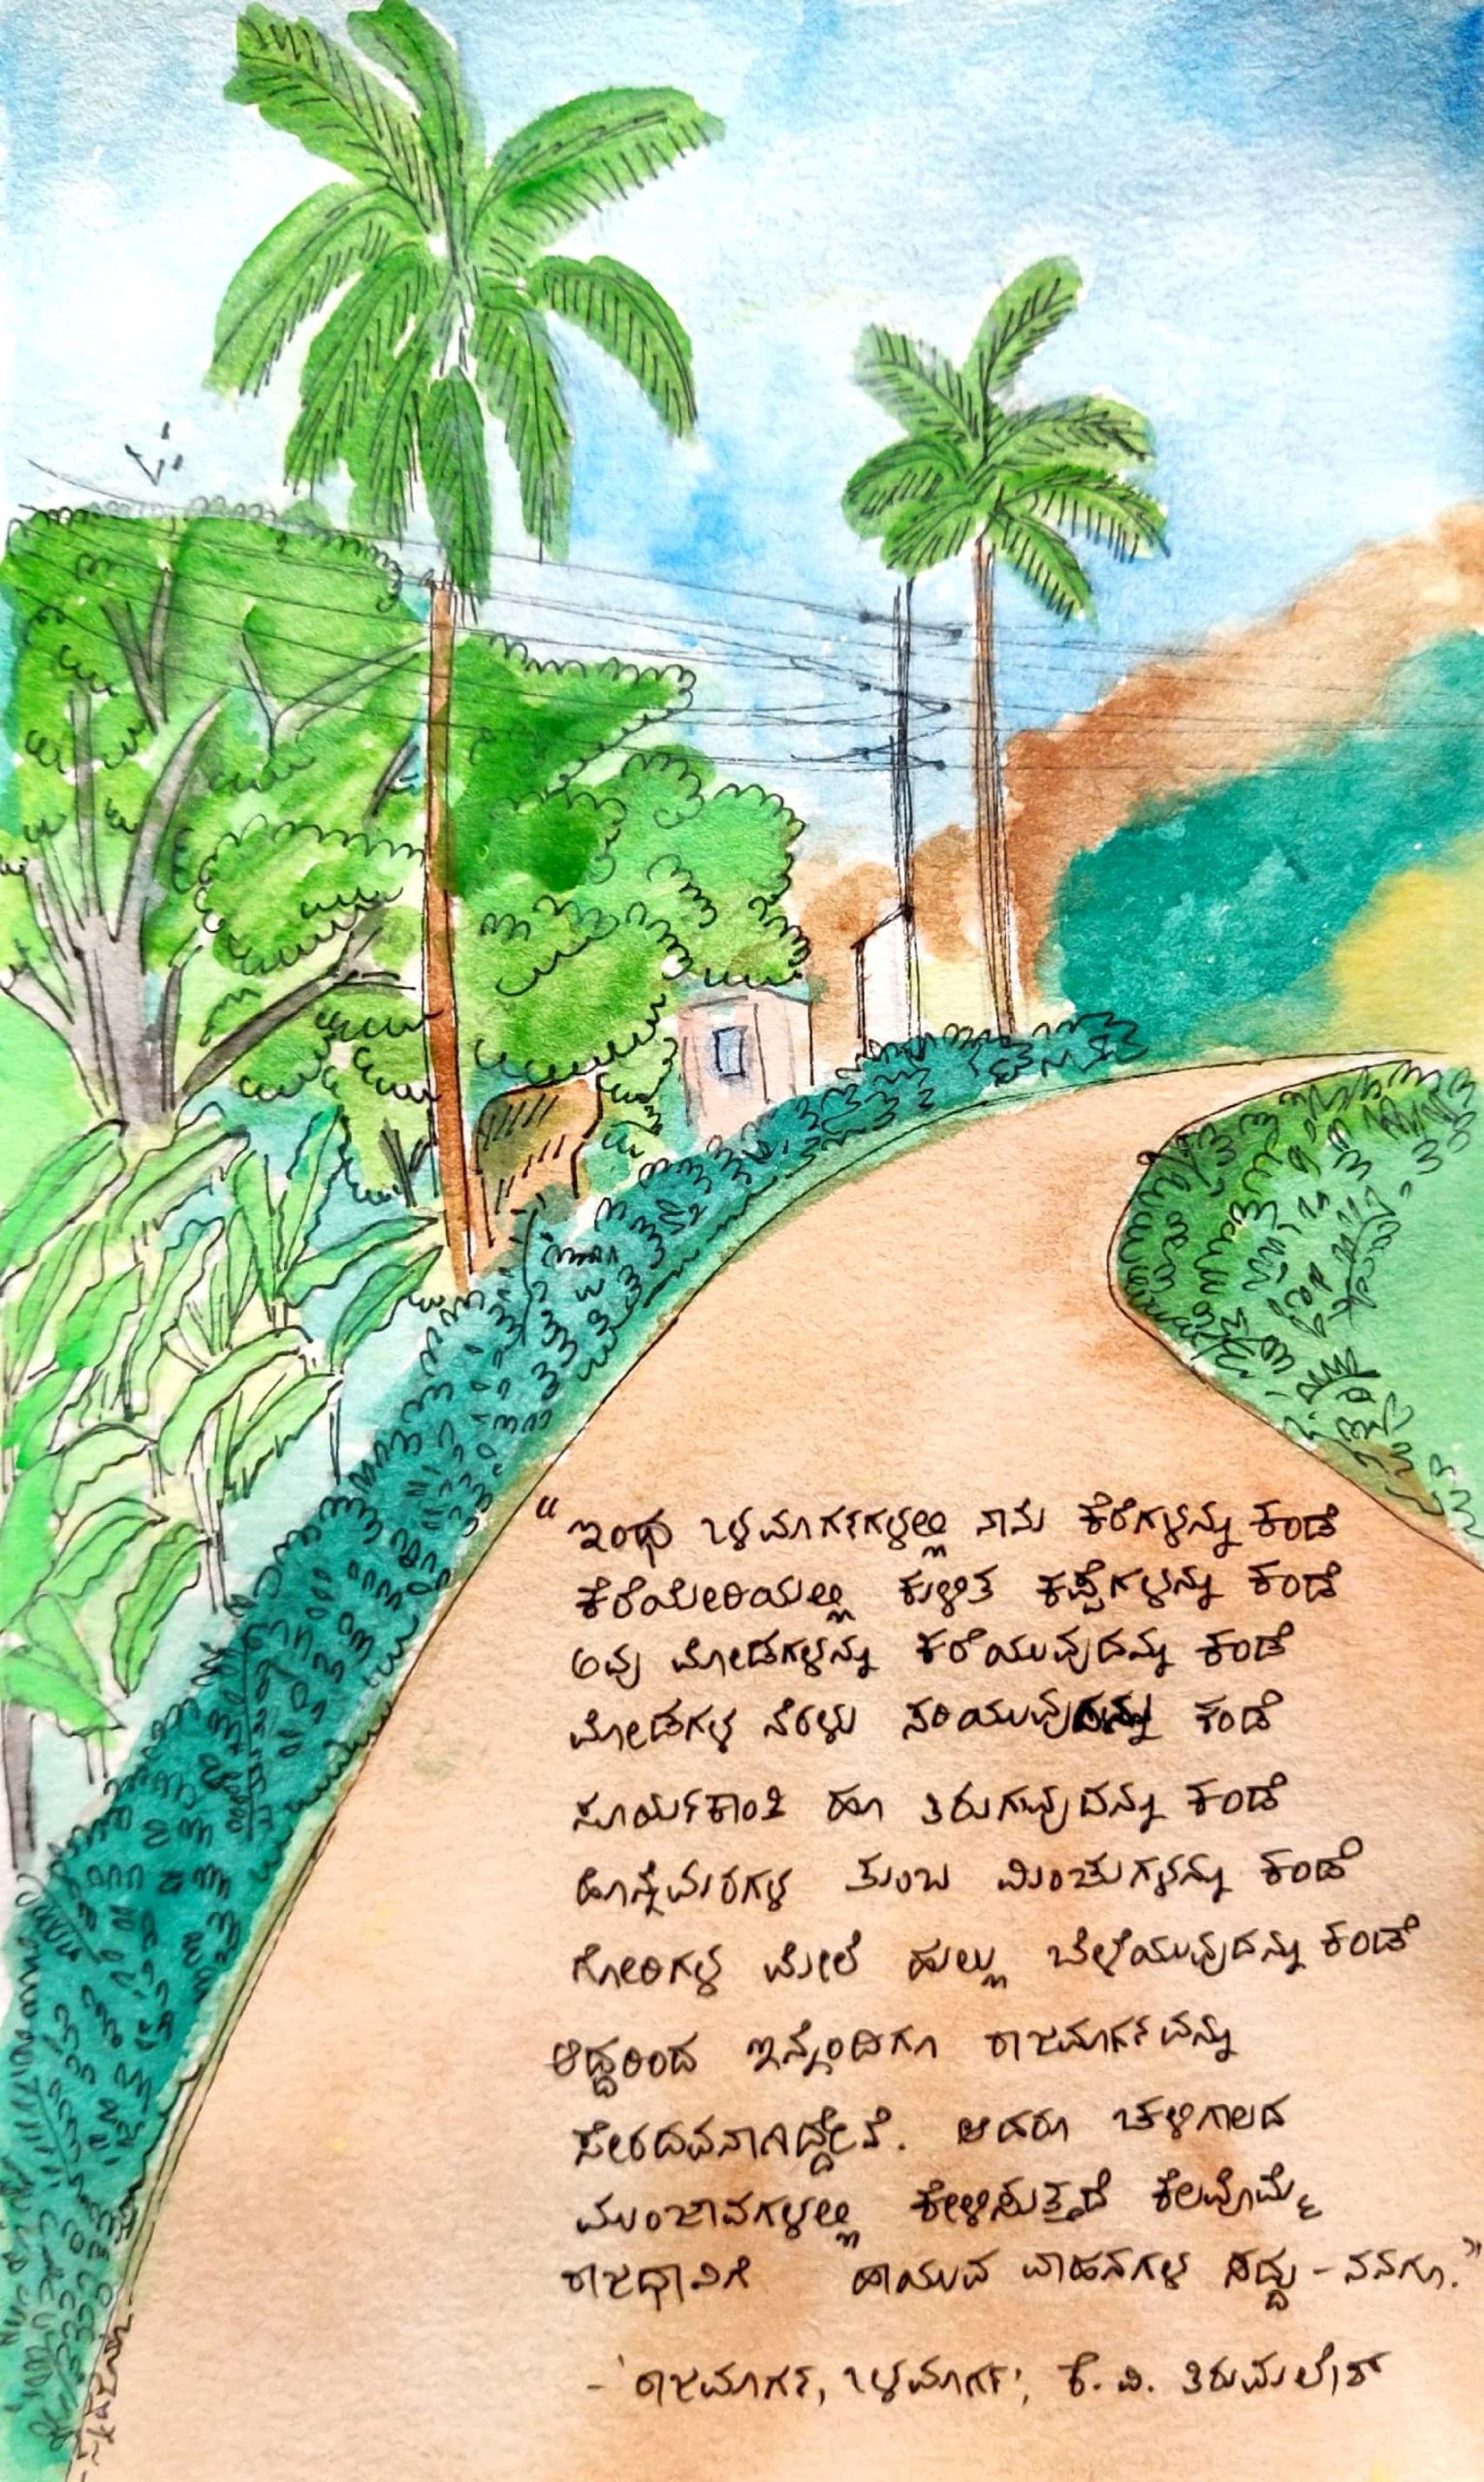 "ಇಂಥ ಒಳಮಾರ್ಗಗಳಲ್ಲಿ ನಾನು ಕೆರೆಗಳನ್ನು ಕಂಡೆ
ಕೆರೆಯೇರಿಯಲ್ಲಿ ಕುಳಿತ ಕಪ್ಪೆಗಳನ್ನು ಕಂಡೆ
ಅವು ಮೋಡಗಳನ್ನು ಕರೆಯುವುದನ್ನು ಕಂಡೆ
ಮೋಡಗಳ ನೆರಳು ಸರಿಯುವುದನ್ನು ಕಂಡೆ
ಸೂರ್ಯಕಾಂತಿ ಹೂ ತಿರುಗುವುದನ್ನು ಕಂಡೆ
ಹೊನ್ನೆಮರಗಳ ತುಂಬ ಮಿಂಚುಗಳನ್ನು ಕಂಡೆ
ಗೋರಿಗಳ ಮೇಲೆ ಹುಲ್ಲು ಬೆಳೆಯುವುದನ್ನು ಕಂಡೆ
ಆದ್ದರಿಂದ ಇನ್ನೊಂದಿಗೂ ರಾಜಮಾರ್ಗವನ್ನು
ಸೇರದವನಾಗಿದ್ದೇನೆ. ಆದರೂ ಚಳಿಗಾಲದ
ಮುಂಜಾವಗಳಲ್ಲಿ ಕೇಳಿಸುತ್ತದೆ ಕೆಲವೊಮ್ಮೆ
ರಾಜಧಾನಿಗೆ ಹಾಯುವ ವಾಹನಗಳ ಸದ್ದು – ನನಗೂ."
- 'ರಾಜಮಾರ್ಗ, ಒಳಮಾರ್ಗ', ಕೆ. ವಿ. ತಿರುಮಲೇಶ್